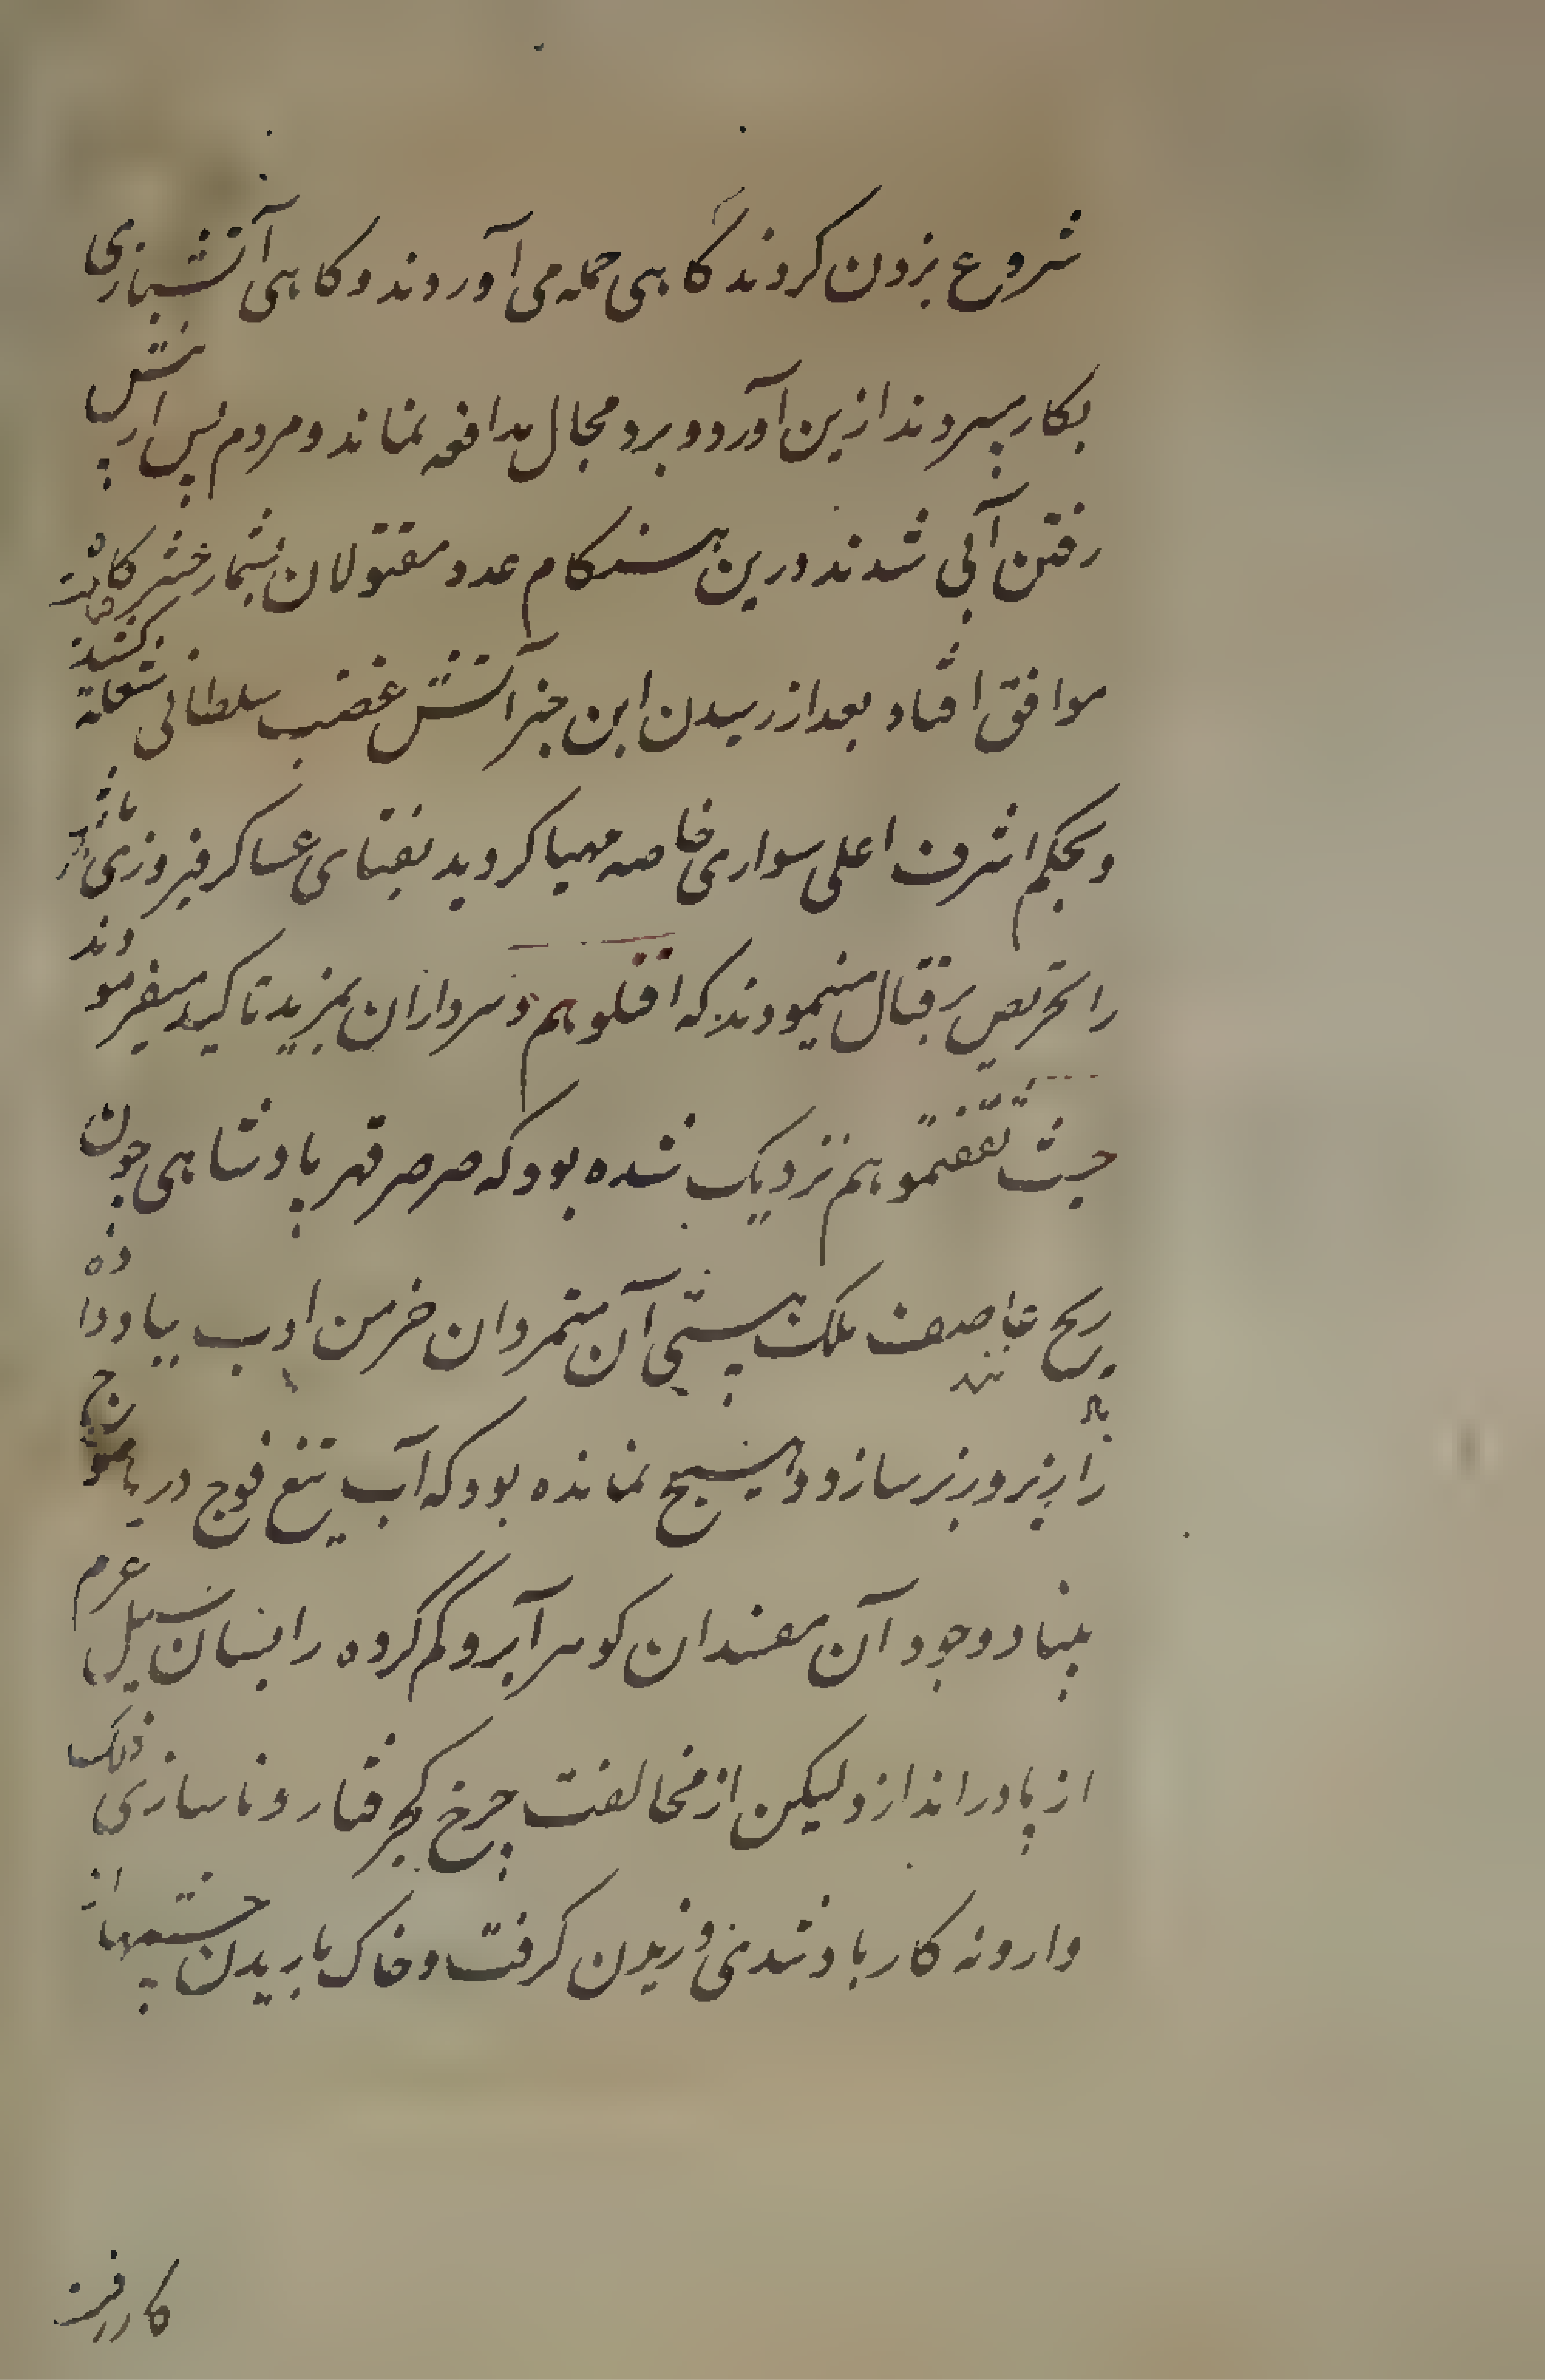 شروع بزدن کردند گاهی حمله می آوردند و کاهی آتشبازی
بکار میبردند ازین آورد و برد مجال مدافعه نماند و مردم پس از پیش
رفتن آبی شدند درین هنکام عدد مقتولان بشمار حشر کاه
موافق افتاد بعد از رسیدن این خبر آتش غضب سلطانی شعله کشید
و بحکم اشرف اعلی سواری خاصه مهیا کردید بفتای عساکر فیروزی
را تحریص بر قتال مینمودند که اقتلوهم و سرداران بمزید تاکید میفرمودند
حیث ثقفتموهم نزدیک شده بود که صرصر قهر پادشاهی چون
ریح عاصف ملک هستی آن متمردان خرمن ادب بباد داده
را زیر و زبر سازد و هیچ نمانده بود که آب تیغ فوج دریا موج
بنیاد وجود آن مفسدان کوهر آبرو کم کروه را بسان سیل عرم
از پا در اندازد لیکن از مخالفت چرخ کجرفتار و ناسازی فلک
وارونه کار باد تندی وزیدن کرفت و خاک باریدن چشمها از
کار رفت